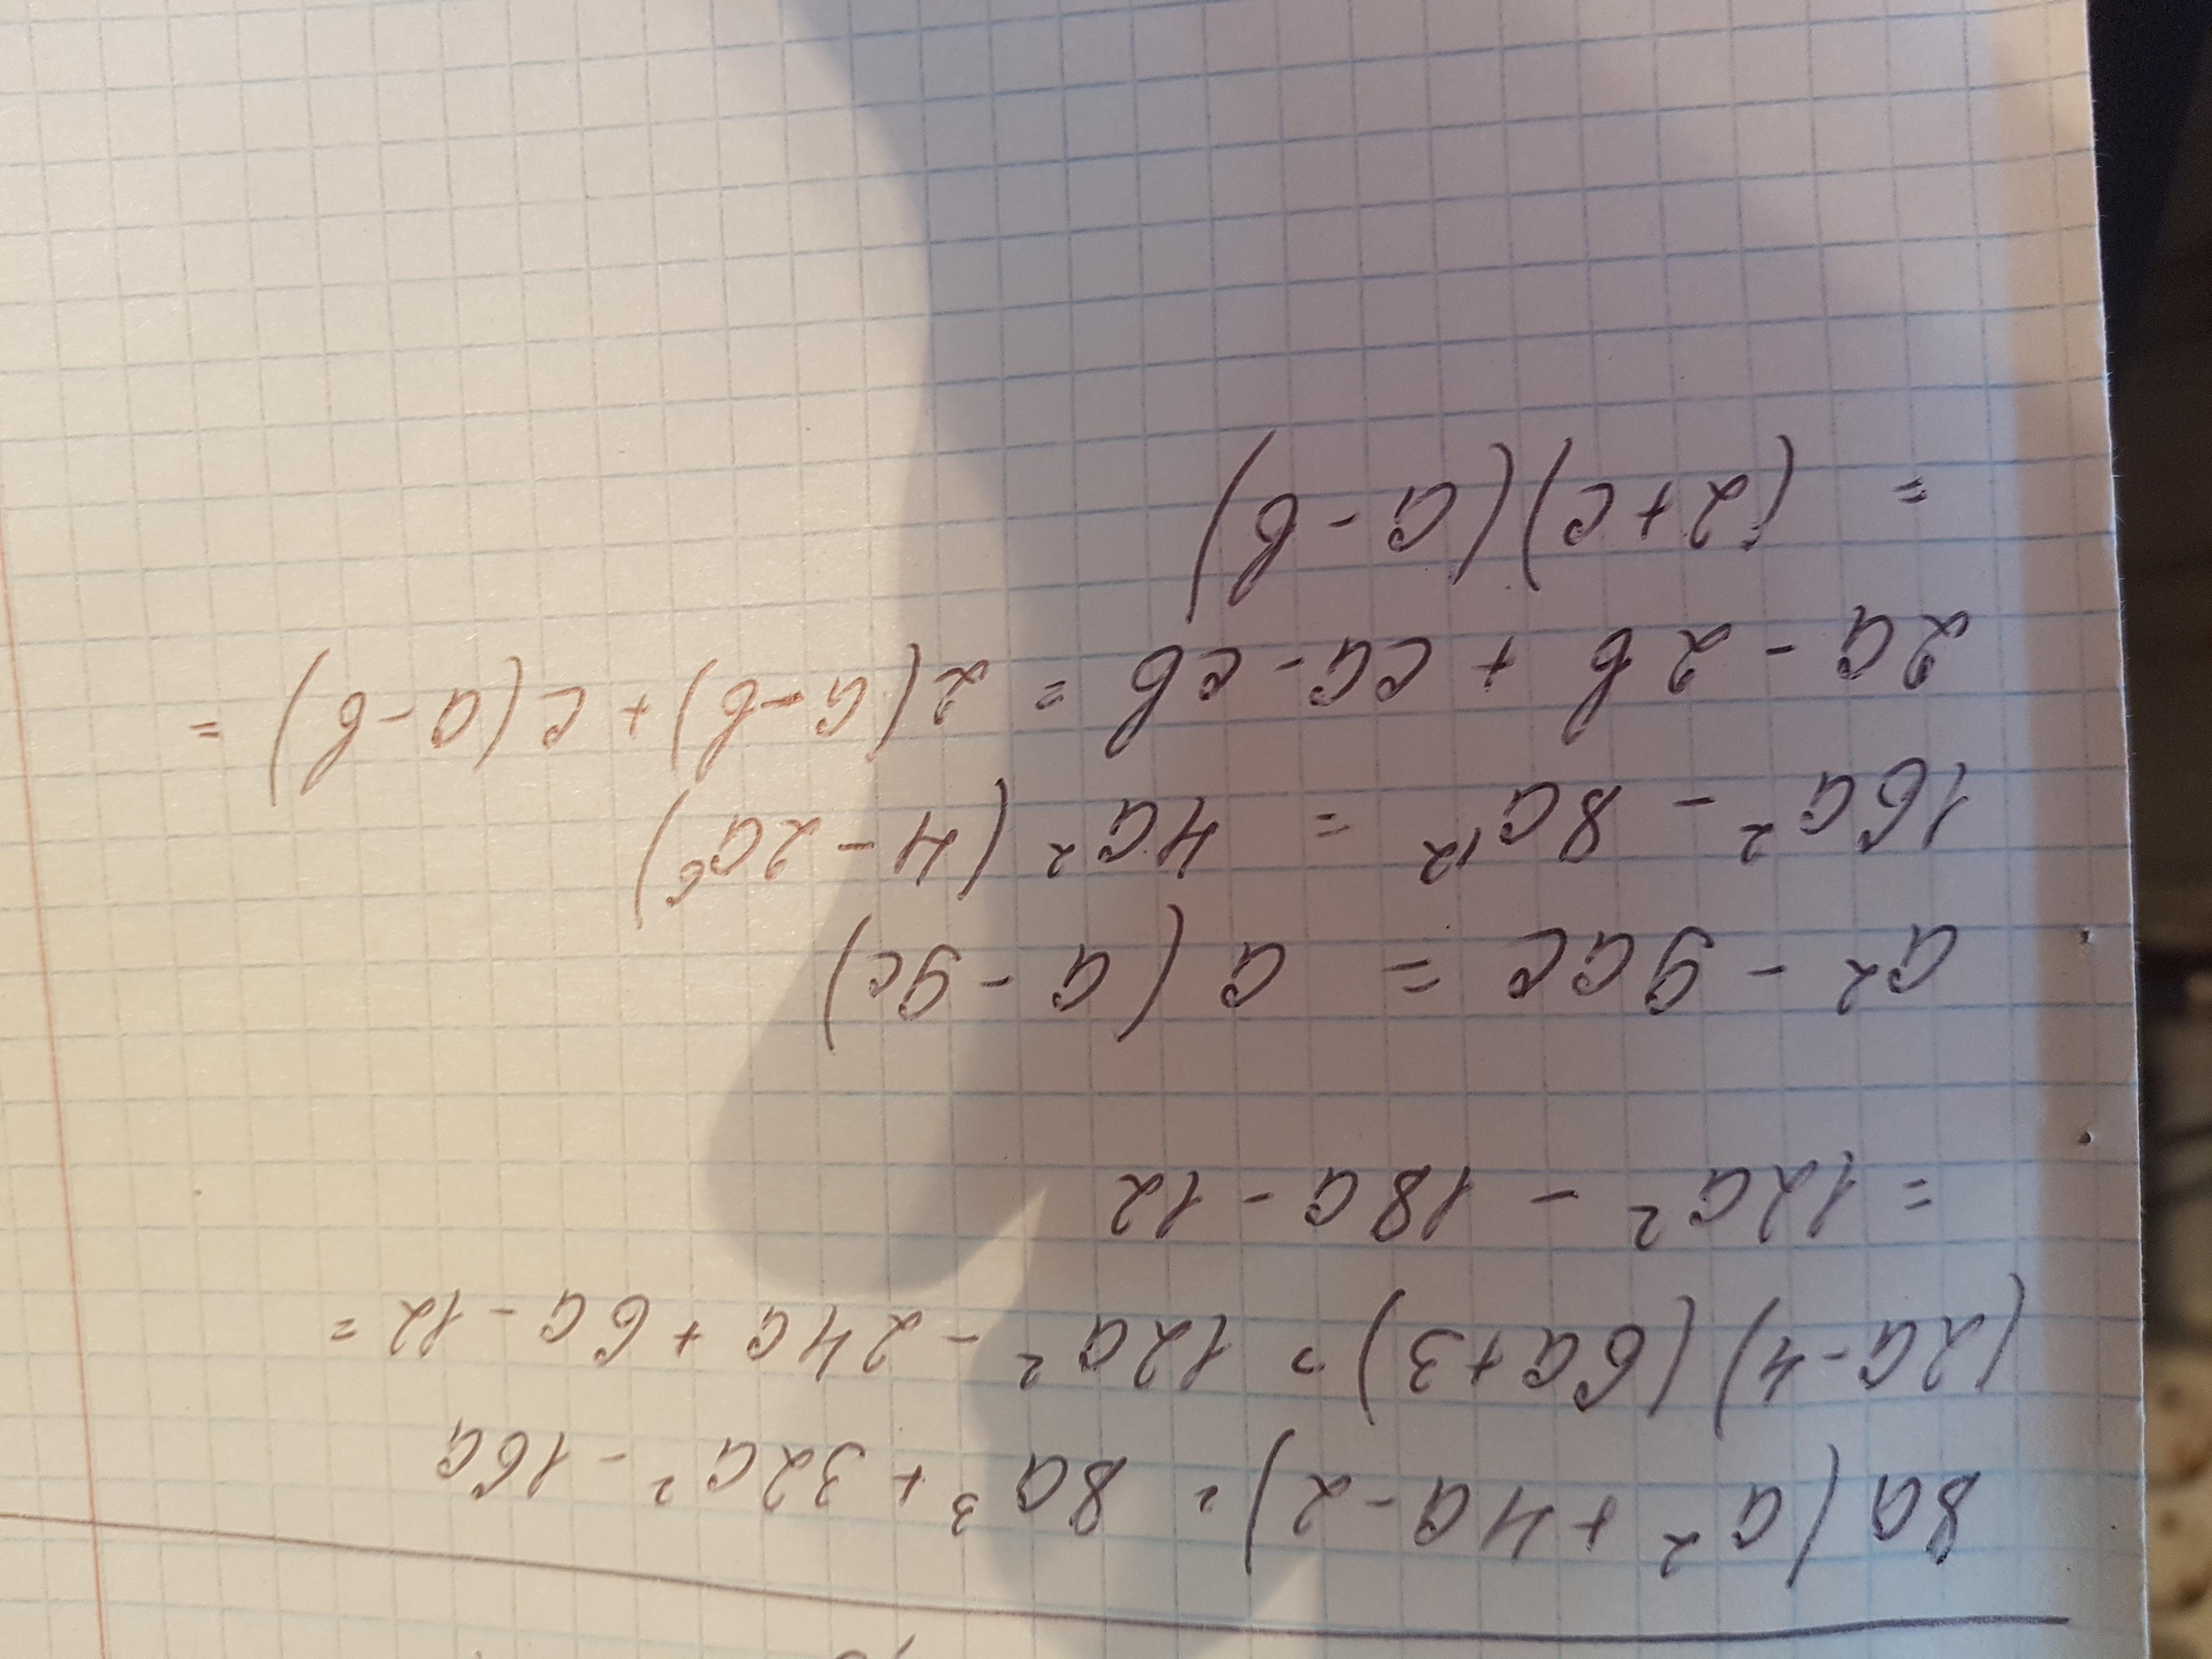 8a(a² + 4a - 2) = 8a³ + 32a² - 16a
(2a - 4)(6a + 3) = 12a² - 24a + 6a - 12 =
= 12a² - 18a - 12
a² - 9ac = a(a - 9c)
16a² - 8a¹² = 4a²(4 - 2a⁶)
2a - 2b + ca - cb = 2(a - b) + c(a - b) =
= (2 + c)(a - b)